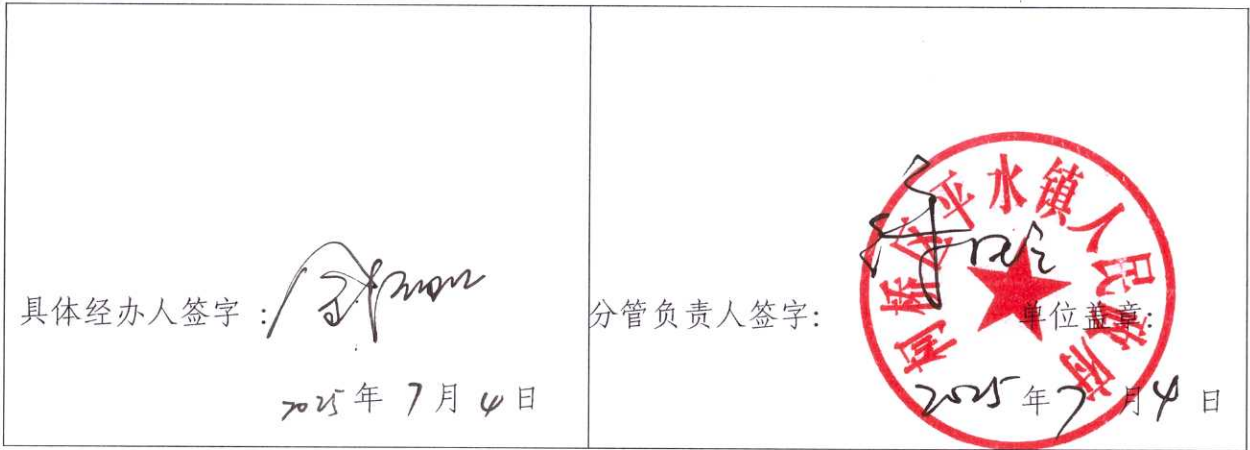 具体经办人签字：
2025年7月4日
分管负责人签字：
单位盖章：
柯桥区平水镇人民政府
2025年7月4日